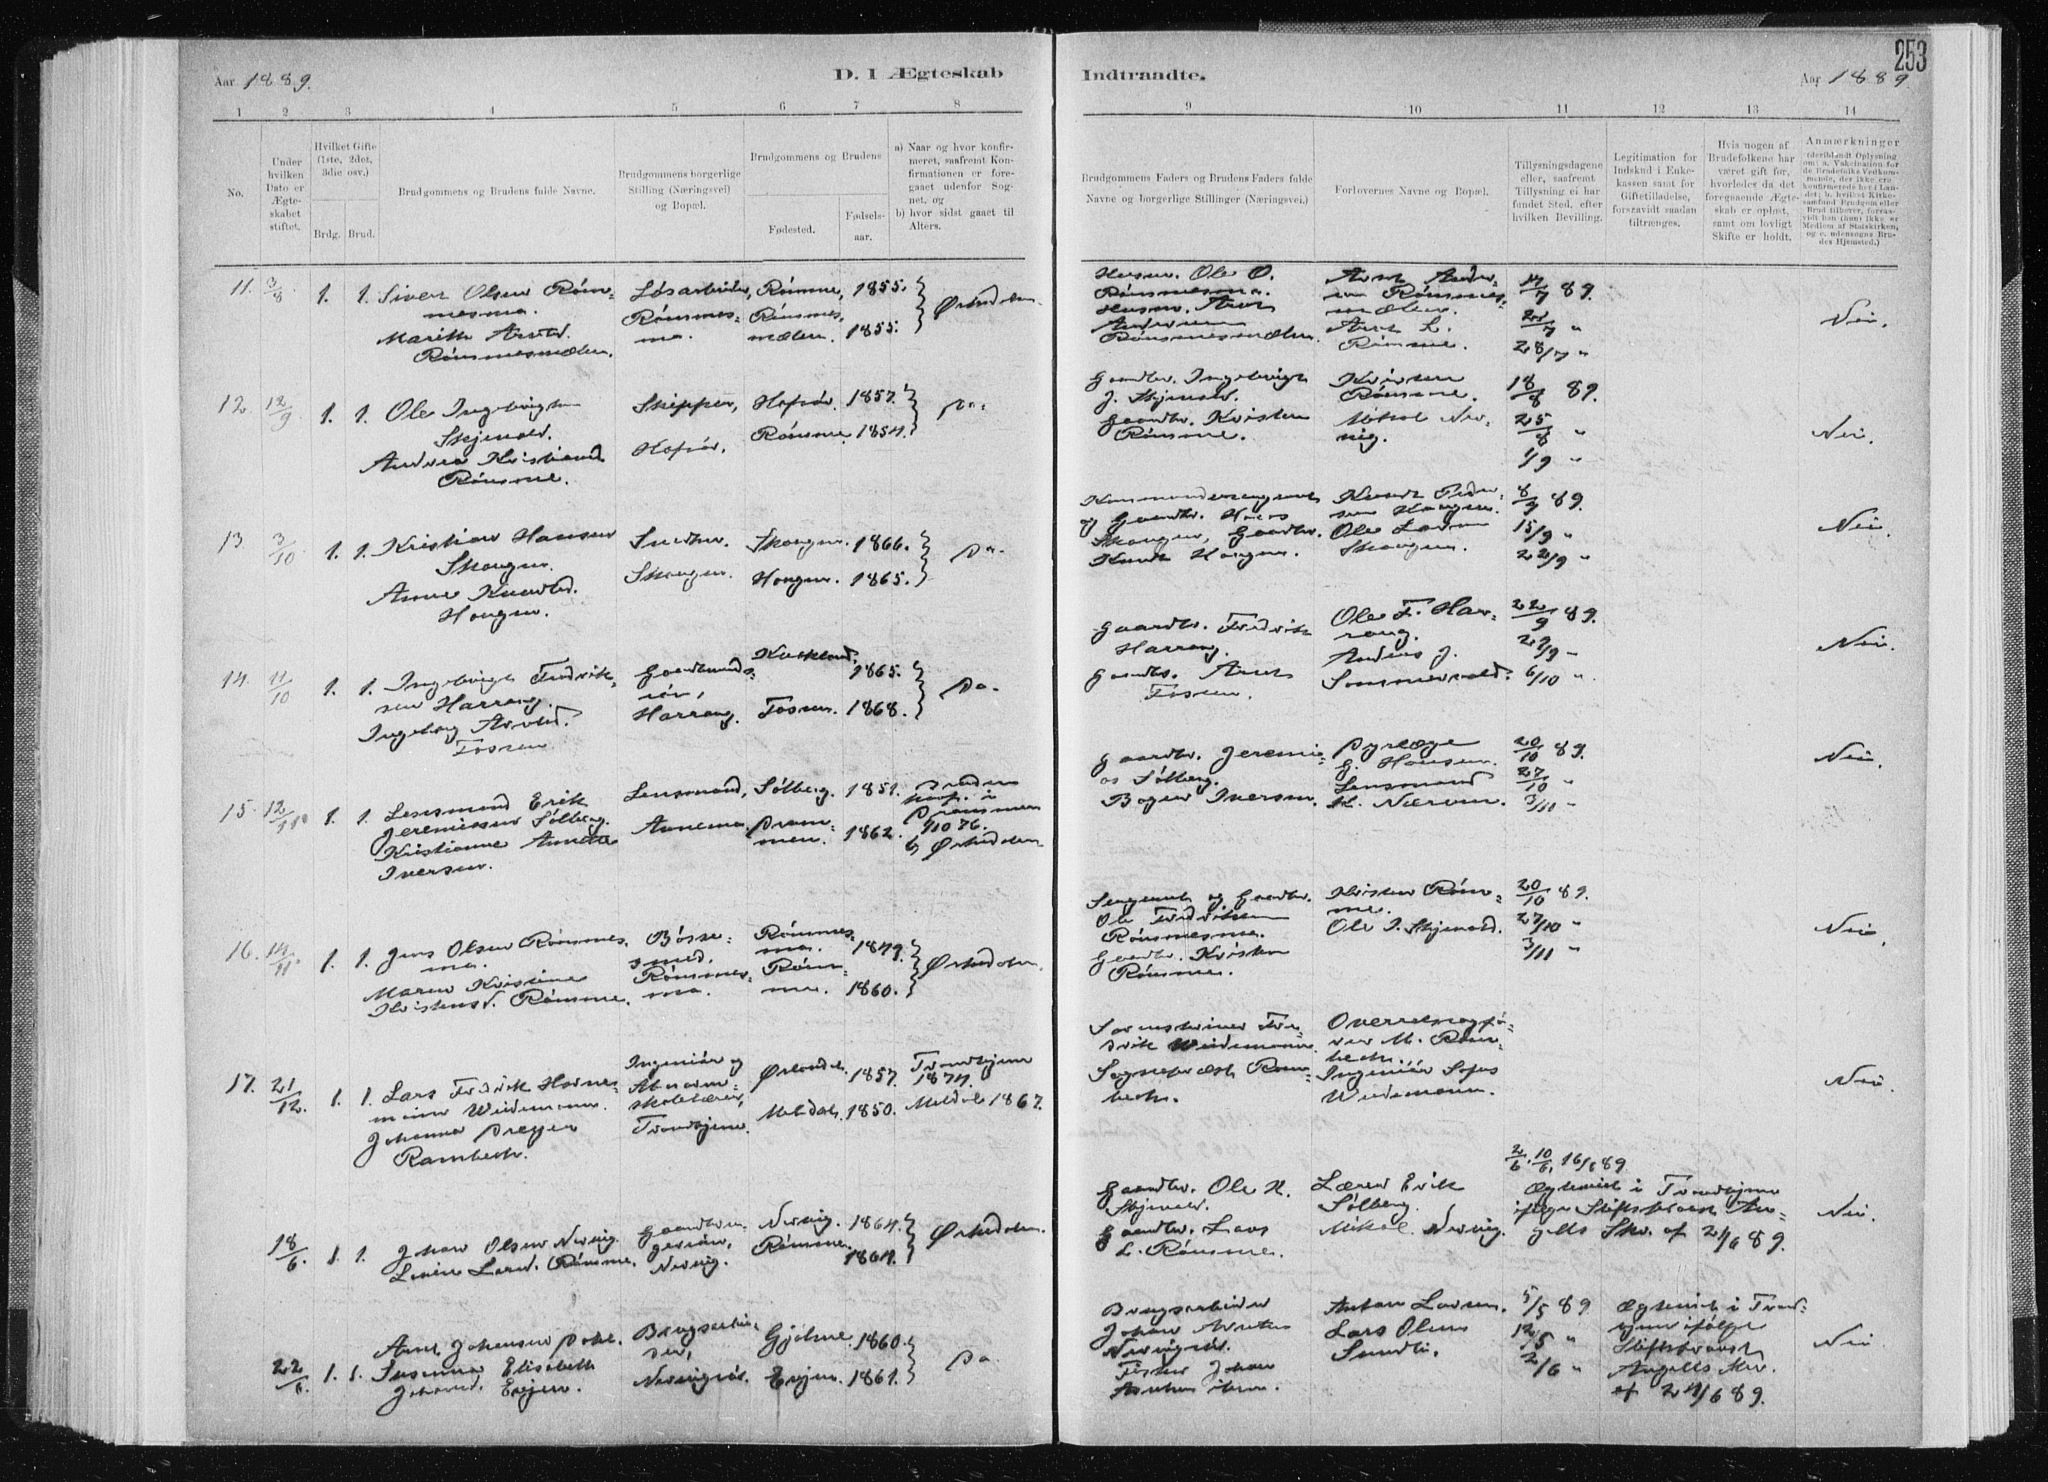 253
Aar 1889.
D. I Ægteskab
Indtraadte.
Aar 1889
1 2 3 4 5 6 7 8
9 10 11 12 13 14
No.
Under hvilken Dato er Ægteskabet stiftet.
Hvilket Gifte (1ste, 2det, 3die osv.)
Brdg. Brud.
Brudgommens og Brudens fulde Navne.
Brudgommens borgerlige Stilling (Næringsvei) og Bopæl.
Brudgommens og Brudens
Fødested.
Fødselsaar.
a) Naar og hvor konfirmeret, saafremt Konfirmationen er foregaaet udenfor Sognet, og
b) hvor sidst gaaet til Alters.
Brudgommens Faders og Brudens Faders fulde Navne og borgerlige Stillinger (Næringsvei.)
Forlovernes Navne og Bopæl.
Tillysningsdagene eller, saafremt Tillysning ei har fundet Sted, efter hvilken Bevilling.
Legitimation for Indskud i Enkekassen samt for Giftetilladelse, forsaavidt saadan tiltrænges.
Hvis nogen af Brudefolkene har været gift før, hvorledes da det foregaaende Ægteskab er opløst, samt om lovligt Skifte er holdt.
Anmærkninger
(deriblandt Oplysning om: a. Vakcination for de Brudefolks Vedkommende, der ikke ere konfirmerede her i Landet; b. hvilket Kirkesamfund Brudgom eller Brud tilhører, forsaavidt han (hun) ikke er Medlem af Statskirken, og c. udensogns Brudes Hjemsted.)
11. 3/8 1. 1. Siver Olsen Røm-
mesmo.
Marith Arntsd.
Rømmesmælen.
Løsarbeider,
Rømmes-
mo.
Rømme, 1855.
Rømmes-
mælen. 1855.
Ørkedalen
Husm. Ole O.
Rømmesmo.
Husm. Arnt
Andersen
Rømmesmælen
Arnt Ander-
sen Rømmes-
mælen.
Arnt L.
Rømme.
14/7 89.
21/7 "
28/7 "
Nei.
12. 12/9 1. 1. Ole Ingebrigtsen
Skjenald.
Andrea Kristiansd
Rømme.
Skipper,
Hofrør.
Hofrør. 1857.
Rømme. 1854.
Do.
Gaardbr. Ingebrigt
J. Skjenald.
Gaardbr. Kristen
Rømme.
Kristen
Rømme.
Mikal Ner-
vig.
18/8 89.
25/8 "
1/9 "
Nei.
13. 3/10 1. 1. Kristian Hansen
Skougen.
Anne Knudtsd.
Hougen.
Snedker
Skougen.
Skougen. 1866.
Hougen. 1865.
Do.
Kommandersergeant
og Gaardbr. Hans
Skougen, Gaardbr.
Knudt Hougen.
Knudt Peder-
sen Hougen.
Ole Larsen
Skougen.
8/9 89.
15/9 "
22/9 "
Nei.
14. 11/10 1. 1. Ingebrigt Fredrik-
sen Harrang.
Ingeborg Arntsd.
Fossen
Gaardmands-
søn,
Harrang.
1865.
Fossen. 1868.
Do.
Gaardbr. Fredrik
Harrang.
Gaardbr. Arnt
Fossen.
Ole F. Har-
rang.
Anders J.
Sommervold.
22/9 89.
29/9 "
6/10 "
Nei.
15. 12/11. 1. 1. Lensmand Erik
Jeremiasen Sølberg.
Kristianne Annette
Iversen.
Lensmand,
Annemo.
Sølberg. 1851.
Dram-
men. 1862.
Bruden
konf. i
Drammen
1/10 76.
b) Ørkedalen
Gaardbr. Jeremi-
as Sølberg.
Bager Iversen
Dyrlæge
G. Hansen.
Lensmand
K. Nærvan.
20/10 89.
27/10 "
3/11 "
Nei.
16. 14/11. 1. 1. Jens Olsen Rømmes-
mo.
Maren Kristine
Kristensd. Rømme.
Børse-
smed,
Rømmes-
mo.
Rømmes-
mo. 1849.
Røm-
me. 1860.
Ørkedalen.
Sergeant og Gaardbr.
Ole Fredriksen
Rømmesmo.
Gaardbr. Kristen
Rømme.
Kristen Røm-
me.
Ole I. Skjenald.
20/10 89.
27/10 "
3/11 "
Nei.
17. 21/12. 1. 1. Lars Fredrik Hannes-
mann Weidemann.
Johanna Dreyer
Rambech.
Ingeniør og
skolelærer,
Trondhjem.
Ørlandet. 1857.
Meldal. 1850.
Trondhjem
1874.
Meldal 1867.
Sorenskriver Fre-
drik Weidemann.
Sogneprest Ram-
bech.
Overretssagfø-
rer M. Ram-
bech.
Ingeniør Sofus
Weidemann.
Nei.
18/6 1. 1. Johan Olsen Nervig.
Lovise Larsd. Rømme.
Gaardbru-
gersøn,
Nervig.
Nervig. 1864.
Rømme. 1864.
Ørkedalen.
Gaardbr. Ole K.
Skjenald.
Gaardbr. Lars
L. Rømme.
Lærer Erik
Sølberg.
Mikal Nervig.
2/6, 10/6, 16/6 89.
Ægteviet i Trondhjem
ifølge Stiftsprovst An-
gells Skr. af 24/6 89.
Nei.
22/6. 1. 1. Arnt Johansen Dahl.
Susanna Elisabeth
Johansd. Evjen.
Brugsarbei-
der,
Nervigrør.
Gjølme. 1860.
Evjen. 1861.
Do
Brugsarbeider
Johan
Nervigrør.
Fisker Johan
Anton Larsen.
Lars Olsen
Sundli.
5/5 89
12/5 "
2/6 "
Ægteviet i Trond-
hjem ifølge
Stiftsprovst
Angells Skr.
af 24/6 89.
Nei.